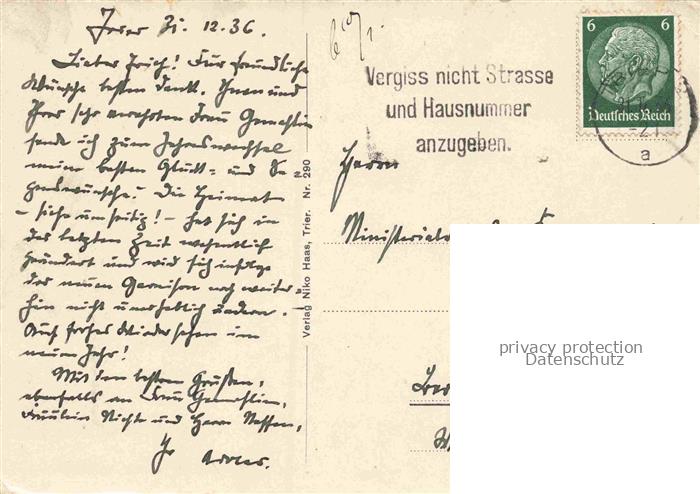 Trier 31.12.36.
Lieber Erich! Für freundliche
Wünsche besten Dank. Ihnen und
Ihrer sehr verehrten Frau Gemahlin
sende ich zum Jahreswechsel
meine besten Glück- und Se-
genswünsche! Die Heimat
- siehe umseitig! - hat sich in
der letzten Zeit wesentlich
geändert und wird sich infolge
der neuen Garnison noch weiter-
hin nicht unerheblich ändern.
Auf frohes Wiedersehen im
neuen Jahr!
Mit den besten Grüßen,
ebenfalls an Frau Gemahlin,
Fräulein Nichte und Herrn Neffen,
Ihr
Verlag Niko Haas, Trier. Nr. 290
Vergiss nicht Strasse
und Hausnummer
anzugeben.
6 6
Deutsches Reich
a
Herrn
Ministerial
Ber
W
privacy protection
Datenschutz